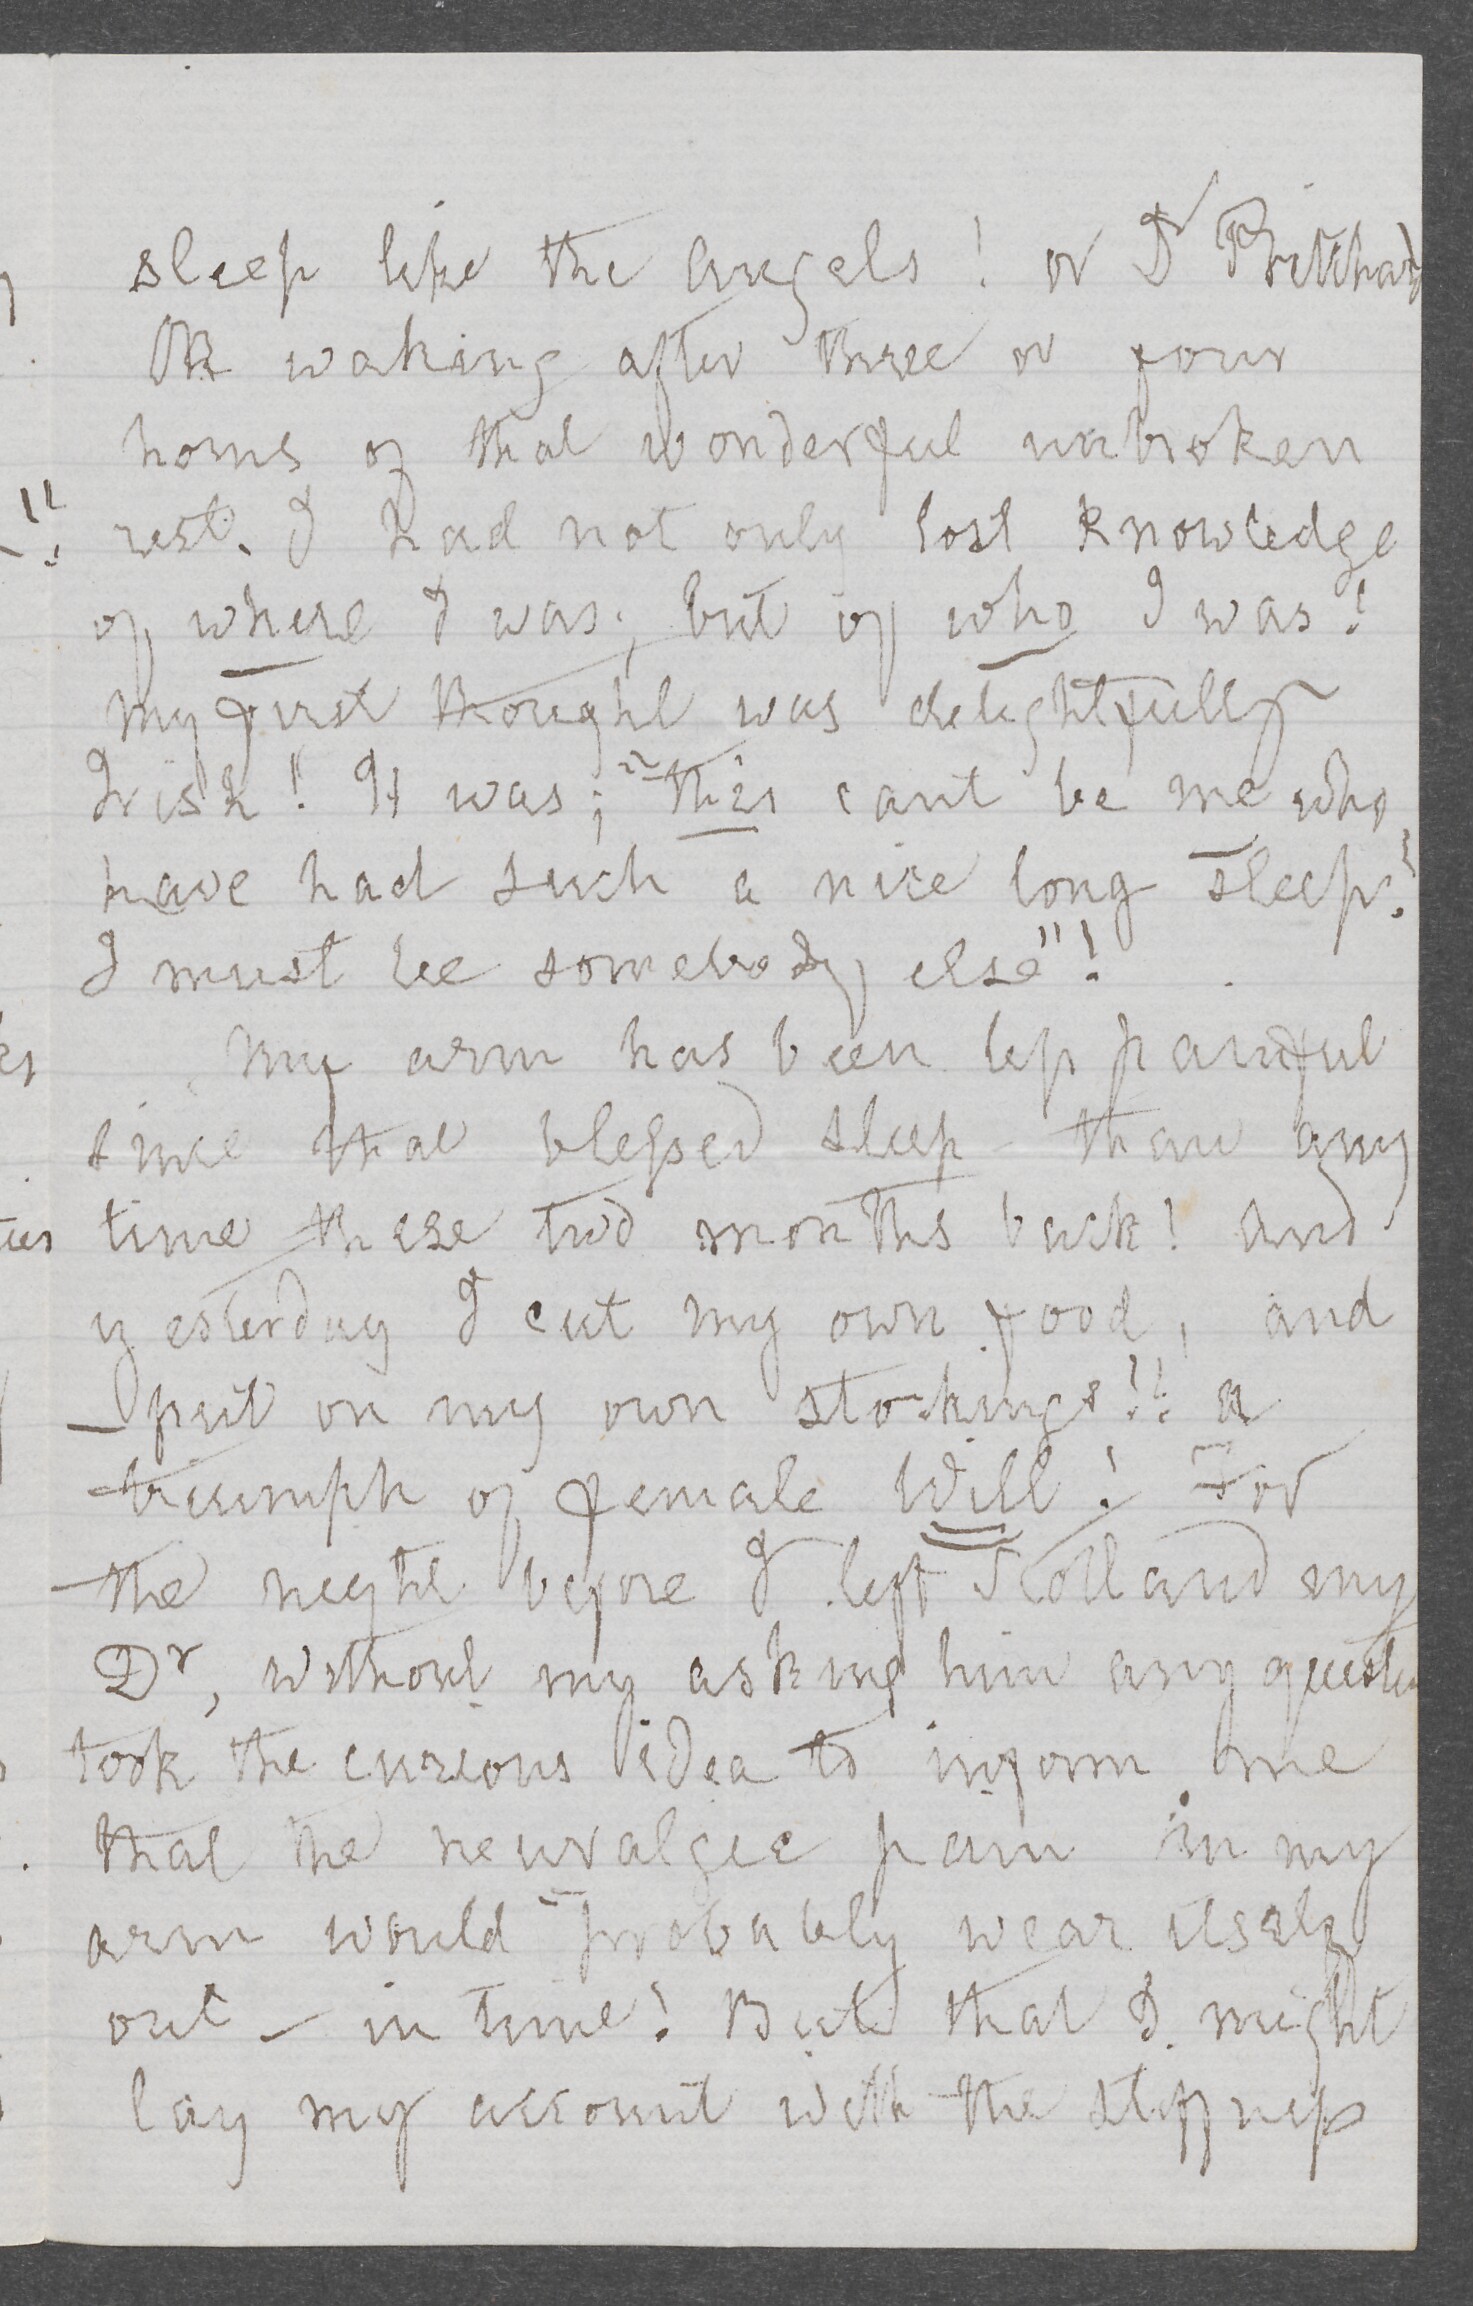 sleep like the Angels! or Dr Pritchard
On waking after three or four
hours of that wonderful unbroken
rest. I had not only lost knowledge
of where I was; but of who I was!
My first thought was delightfully
Irish! It was; "this cant be me who
have had such a nice long sleep!
I must be somebody else"!
My arm has been less painful
since that blessed sleep than any
time these two months back! And
yesterday I cut my own food, and
put on my own stockings!! a
triumph of female Will! For
the night before I left Scotland my
Dr, without my asking him any question
took the curious idea to inform me
that the neuralgic pain in my
arm would probably wear itself
out – in time! But that I might
lay my account with the stiffness